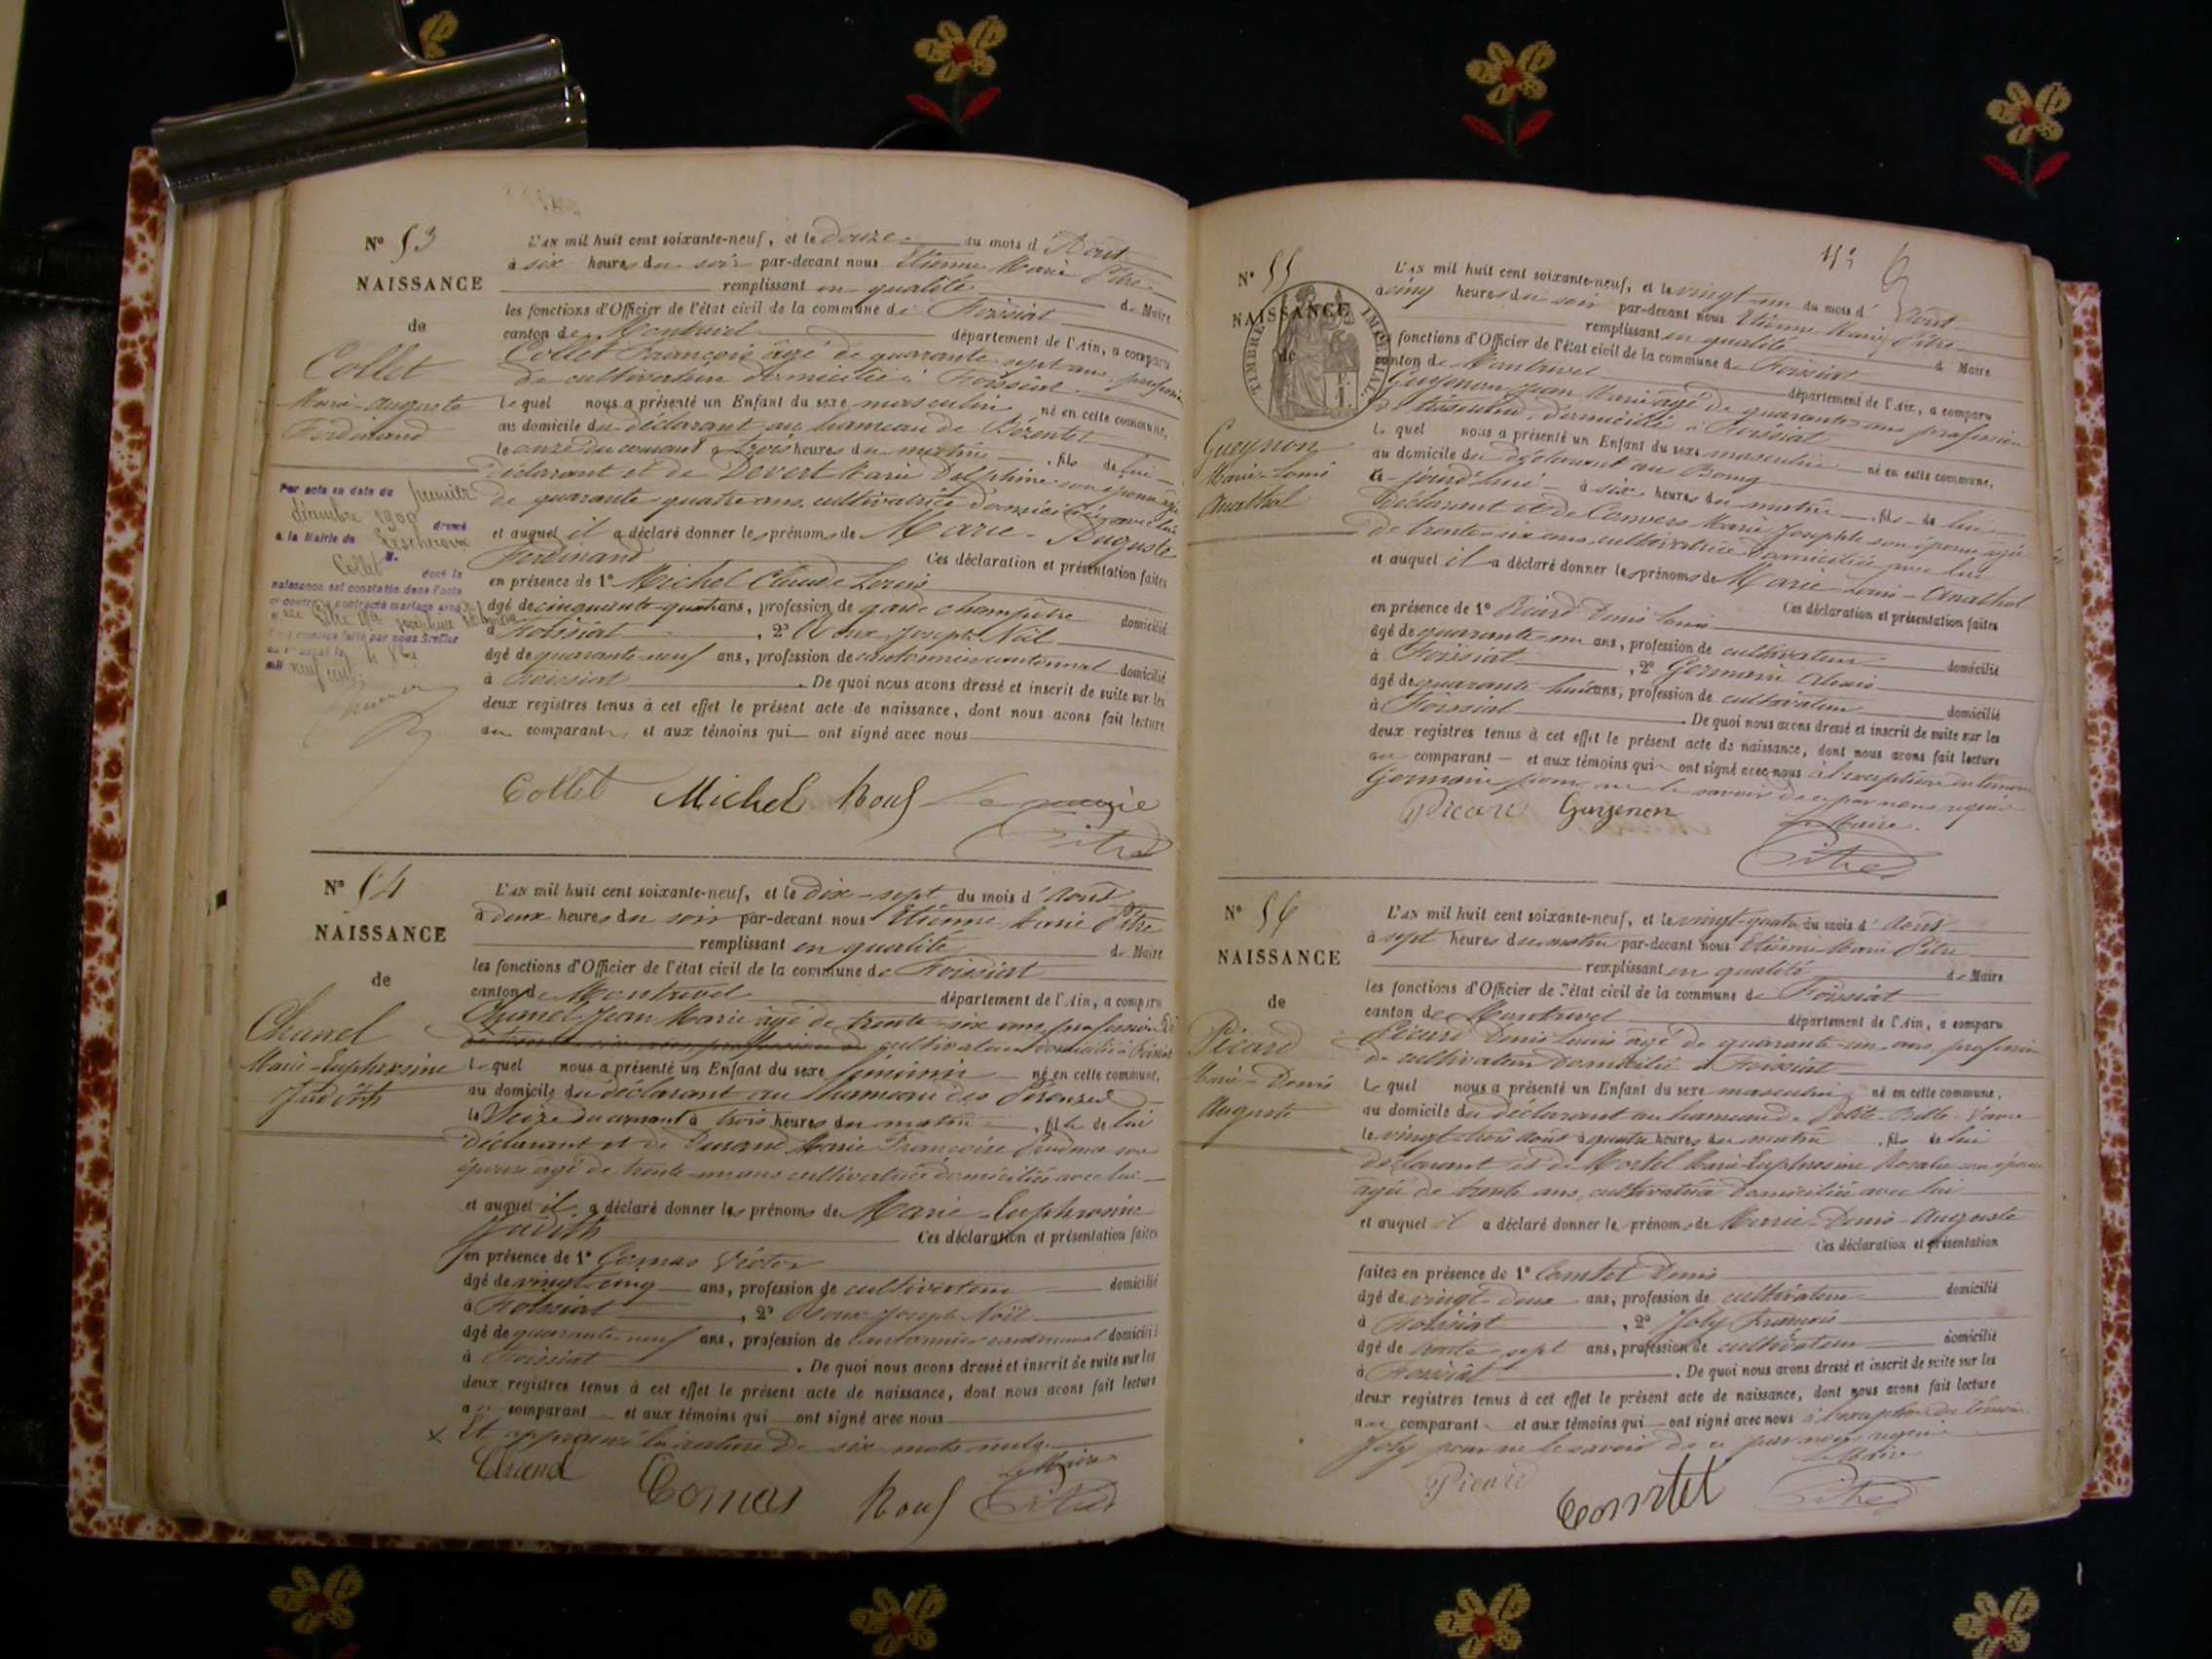 N° 53
NAISSANCE
de
Collet
Marie-Auguste
Ferdinand
L'AN mil huit cent soixante-neuf, et le douze du mois d'Août
à six heures du soir par-devant nous Etienne Marie Pitre
remplissant en qualité de Maire
les fonctions d'Officier de l'état civil de la commune de Foissiat
canton de Montrevel département de l'Ain, a comparu
Collet François âgé de quarante-sept ans, profession
de cultivateur domicilié à Foissiat
Lequel nous a présenté un Enfant du sexe masculin né en cette commune,
au domicile du déclarant au hameau de
le onze du courant à trois heures du matin fils de lui
déclarant et de Devert Marie Delphine son épouse âgée
de quarante-quatre ans cultivatrice domiciliée avec lui
et auquel il a déclaré donner les prénoms de Marie-Auguste
Ferdinand Ces déclaration et présentation faites
en présence de 1° Michel Claude Louis
âgé de cinquante-quatre ans, profession de garde champêtre domicilié
à Foissiat, 2° Roux Joseph Noël
âgé de quarante-neuf ans, profession de cantonnier domicilié
à Foissiat. De quoi nous avons dressé et inscrit de suite sur les
deux registres tenus à cet effet le présent acte de naissance, dont nous avons fait lecture
au comparant, et aux témoins qui ont signé avec nous
Par acte en date du premier
décembre 1900 dressé
à la Mairie de Lescheroux
M.
Collet dont la
naissance est constatée dans l'acte
ci-contre a contracté mariage avec
Joséphine
faite par nous Greffier
mil neuf cent
Collet Michel Roux Le Maire
Pitre
N° 54
NAISSANCE
de
Chanel
Marie-Euphrosine
Judith
L'AN mil huit cent soixante-neuf, et le dix-sept du mois d'Août
à deux heures du soir par-devant nous Etienne Marie Pitre
remplissant en qualité de Maire
les fonctions d'Officier de l'état civil de la commune de Foissiat
canton de Montrevel département de l'Ain, a comparu
Chanel Jean Marie âgé de trente-six ans profession de
cultivateur domicilié à Foissiat
Lequel nous a présenté un Enfant du sexe féminin né en cette commune,
au domicile du déclarant au hameau des
le Seize du courant à trois heures du matin, fille de lui
déclarant et de Durand Marie Françoise son
épouse âgé de trente-un ans cultivatrice domiciliée avec lui
et auquel il a déclaré donner les prénoms de Marie-Euphrosine
Judith Ces déclaration et présentation faites
en présence de 1° Comas Victor
âgé de vingt-cinq ans, profession de cultivateur domicilié
à Foissiat, 2° Roux Joseph Noël
âgé de quarante-neuf ans, profession de cantonnier communal domicilié
à Foissiat. De quoi nous avons dressé et inscrit de suite sur les
deux registres tenus à cet effet le présent acte de naissance, dont nous avons fait lecture
au comparant et aux témoins qui ont signé avec nous
x Et approuvé la rature de six mots nuls
Chanel Comas Roux Le Maire
Pitre
N° 55
NAISSANCE
de
TIMBRE IMPERIAL
Guyenon
Marie-Louis
Anathol
L'AN mil huit cent soixante-neuf, et le vingt-un du mois d'Août
à cinq heures du soir par-devant nous Etienne Marie Pitre
remplissant en qualité de Maire
fonctions d'Officier de l'état civil de la commune de Foissiat
canton de Montrevel département de l'Ain, a comparu
Guyenon Jean Marie âgé de quarante ans profession
de tisserand, domicilié à Foissiat
Lequel nous a présenté un Enfant du sexe masculin né en cette commune,
au domicile du déclarant au Bourg
ce-jourd'hui à six heures du matin, fils de lui
déclarant et de Convers Marie Josephte son épouse âgée
de trente-six ans, cultivatrice domiciliée avec lui
et auquel il a déclaré donner les prénoms de Marie-Louis-Anathol
Ces déclaration et présentation faites
en présence de 1° Picard Denis Louis
âgé de quarante-un ans, profession de cultivateur domicilié
à Foissiat, 2° Germain Alexis
âgé de quarante-huit ans, profession de cultivateur domicilié
à Foissiat. De quoi nous avons dressé et inscrit de suite sur les
deux registres tenus à cet effet le présent acte de naissance, dont nous avons fait lecture
au comparant et aux témoins qui ont signé avec nous à l'exception du témoin
Germain pour ne le savoir de ce par nous requis
Picard Guyenon Le Maire
Pitre
N° 56
NAISSANCE
de
Picard
Marie-Denis
Auguste
L'AN mil huit cent soixante-neuf, et le vingt-quatre du mois d'Août
à sept heures du matin par-devant nous Etienne Marie Pitre
remplissant en qualité de Maire
les fonctions d'Officier de l'état civil de la commune de Foissiat
canton de Montrevel département de l'Ain, a comparu
Picard Denis Louis âgé de quarante-un ans, profession
de cultivateur domicilié à Foissiat
Lequel nous a présenté un Enfant du sexe masculin né en cette commune,
au domicile du déclarant au hameau de Petite
le vingt-trois Août à quatre heures du matin, fils de lui
déclarant et de Mortel Marie-Euphrosine Rosalie son épouse
âgée de trente ans, cultivatrice domiciliée avec lui
et auquel il a déclaré donner les prénoms de Marie-Denis-Auguste
Ces déclaration et présentation
faites en présence de 1° Comtet Denis
âgé de vingt-deux ans, profession de cultivateur domicilié
à Foissiat, 2° Joly François
âgé de trente-sept ans, profession de cultivateur domicilié
à Foissiat. De quoi nous avons dressé et inscrit de suite sur les
deux registres tenus à cet effet le présent acte de naissance, dont nous avons fait lecture
au comparant et aux témoins qui ont signé avec nous à l'exception du témoin
Joly pour ne le savoir de ce par nous requis
Picard Comtet Le Maire
Pitre